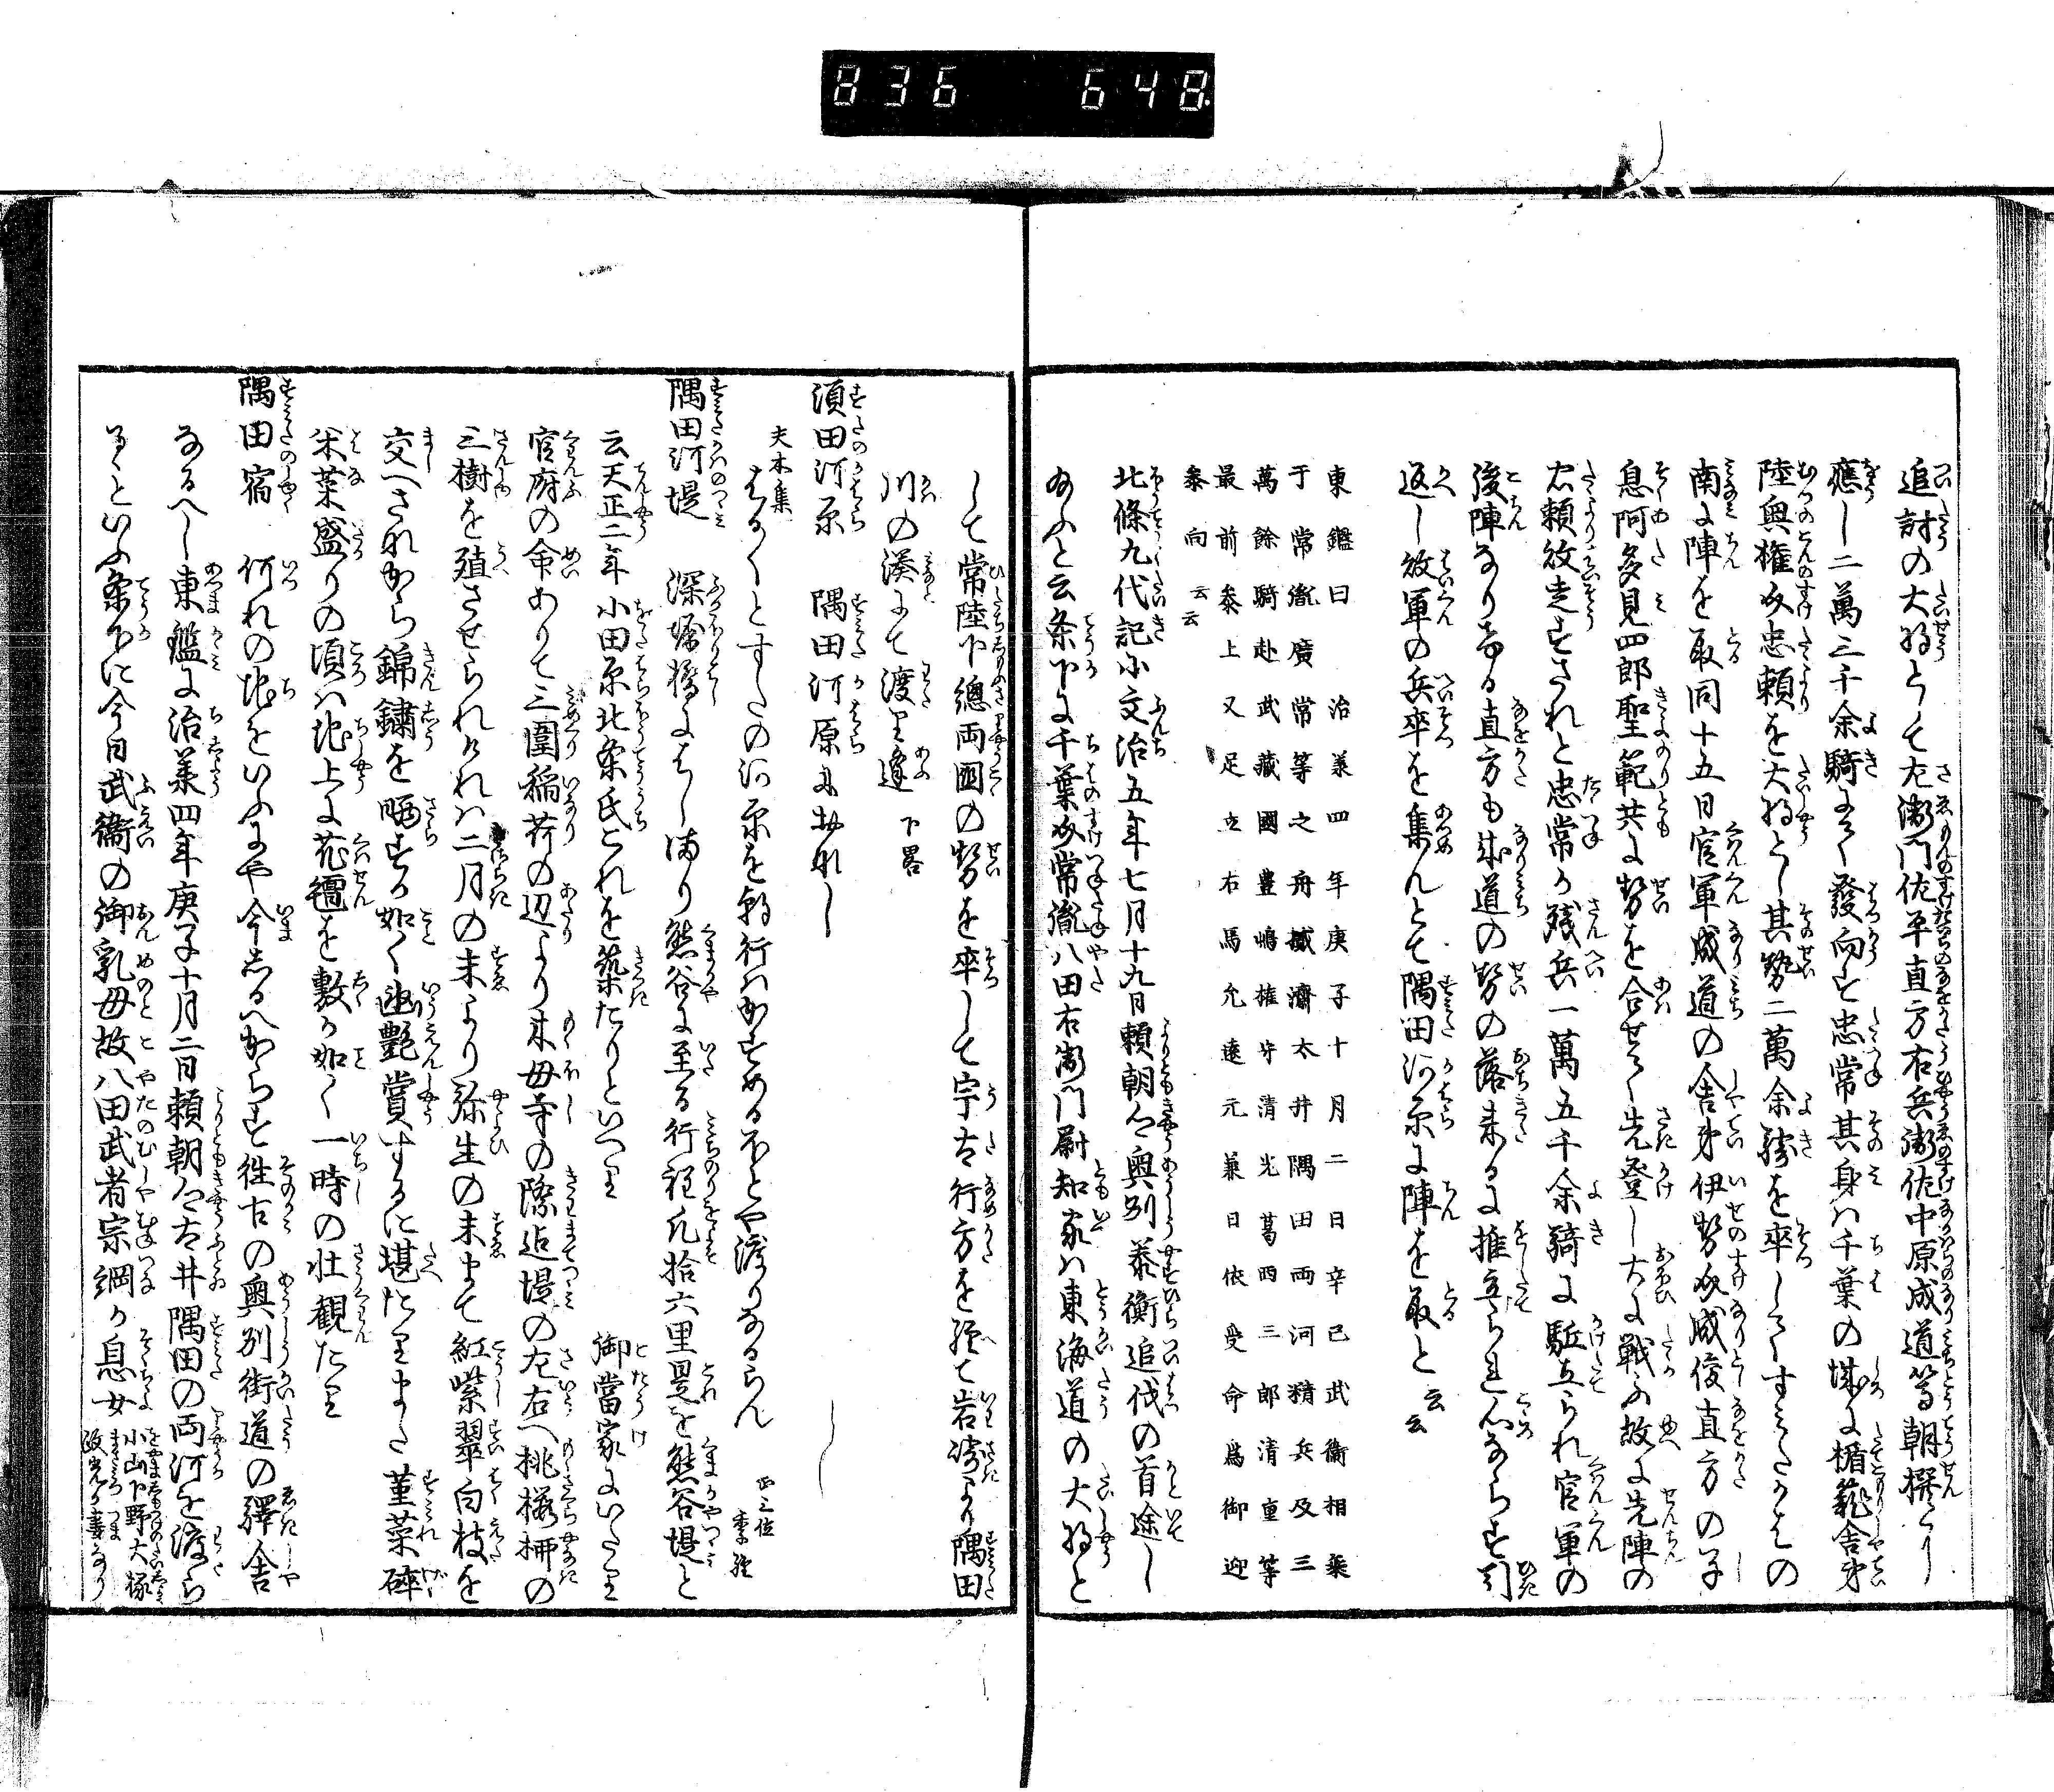 836 648
追討の大将として左衛門佐平直方右兵衛佐中原成道等朝撰に
應し二萬三千余騎にて發向す忠常其身は千葉の城に楯籠舎弟
陸奥権介忠頼を大将とし其勢二萬余騎を率してすみたかはの
南に陣を取同十五日官軍成道の舎弟伊勢介成俊直方の子
息阿多見四郎聖範共に勢を合せて先登し大に戦ふ故に先陣の
忠頼敗走すされと忠常の残兵一萬五千余騎に駈立られ官軍の
後陣なりける直方も成道の勢の落来るに推立られ心ならす引
返し敗軍の兵卒を集んとて隅田河原に陣を取と云云
東鑑曰治羕四年庚子十月二日辛巳武衞相乗
于常胤廣常等之舟檝濟太井隅田両河精兵及三
萬餘騎赴武藏國豊嶋権守清光葛西三郎清重等
最前叅上又足立右馬允遠元兼日依受命爲御迎
叅向云云
北條九代記小文治五年七月十九日頼朝公奥州泰衡追伐の首途し
給ふと云条下に千葉介常胤八田右衛門尉知家は東海道の大将と
して常陸下總両國の勢を卒して宇古行方を経て岩崎より隅田
川の湊にて渡り逢下畧
須田河原 隅田河原におなし
夫木集 はる〳〵とすたの河原を朝行はかすめるほとや渡りなるらん 正三位季経
隅田河堤 深川猿橋にはしまり熊谷に至る行程凡拾六里是を熊谷堤と
云天正二年小田原北条氏これを築たりといへり 御當家にいたり
官府の命ありて三圍稲荷の辺より木母寺の際迠堤の左右へ桃桜柳の
三樹を殖させられけれは二月の末より弥生の末まて紅紫翠白枝を
交へさなから錦繡を晒する如く幽艶賞するに堪たりまた菫菜碎
米菜盛りの頃は地上に花氈を敷か如く一時の壮観たり
隅田宿 何れの地をいふにや今しるへからす徃古の奥州街道の驛舎
なるへし東鑑に治羕四年庚子十月二日頼朝公太井隅田の両河を渡ら
るゝといふ条下に今日武衞の御乳母故八田武者宗綱か息女小山下野大掾政光か妻なり